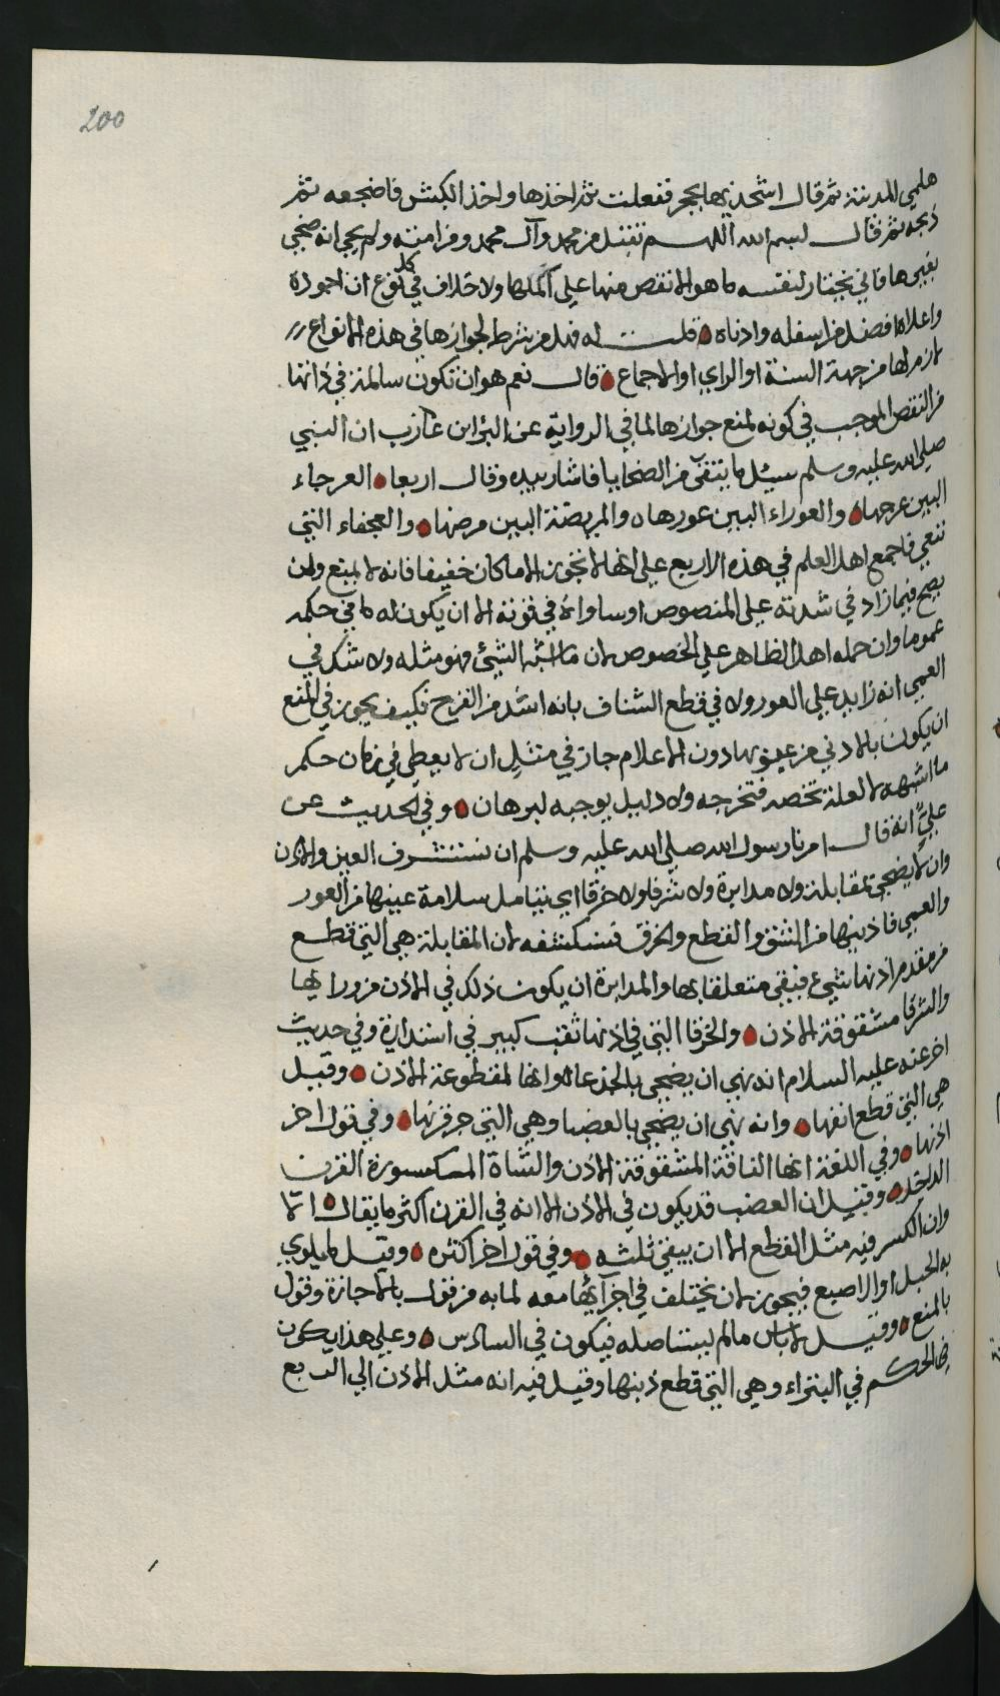 200
هلمي المدينة ثم قال اشحذيها بحجر ففعلت ثم اخذها واخذ الكبش فاضجعه ثم
ذبحه ثم قال بسم الله اللهم تقبل من محمد وآل محمد ومن امته ولم يجي انه ضحى
بغيرها فاني يختار لنفسه ما هو الانقص منها على اكملها ولا خلاف في كل نوع ان اجوده
واعلاه افضل من اسفله وادناه قلت له فهل من شرط لجوازها في هذه الانواع
لازم لها من جهة السنة او الراي او الاجماع قال نعم هو ان تكون سالمة في ذاتها
من النقص الموجب في كونه لمنع جوازها لما في الرواية عن البرا ابن عازب ان النبي
صلى الله عليه وسلم سيل ما يتقى من الضحايا فاشار بيده وقال اربعا العرجاء
البين عرجها والعوراء البين عورها والمريضة البين مرضها والعجفاء التي
تنقي فاجمع اهل العلم في هذه الاربع على انها لا تجوز الا ما كان خفيفا فانه لا يمنع ولن
يصح فيما زاد في شدته على المنصوص او ساواه في قوته الا ان يكون له ما في حكمه
عموما وان حمله اهل الظاهر على الخصوص لان ما اشبه الشئ فهو مثله ولا شك في
العمى انه زايد على العور ولا في قطع الشناف بانه اشد من القرح فكيف يجوز في المنع
ان يكون بالادنى من عيوبها دون الاعلام جاز في مثل ان لا يعطى في زمان حكم
ما اشبهه لا لعلة تخصه فتخرجه ولا دليل يوجبه لبرهان وفي الحديث عن
علي انه قال امرنا رسول الله صلى الله عليه وسلم ان نستشرف العين والاذن
وان لا يضحي بمقابلة ولا مدابرة ولا شرقا ولا خرقا اي يتامل سلامة عينها من العور
والعمى فاذنيها من الشق والقطع والخرق فيستكشفه لان المقابلة هي التي قطع
من مقدم اذنها شيء فبقي متعلقا بها والمدابرة ان يكون ذلك في الاذن من ورايها
والشرقا مشقوقة الاذن والخرقا التي في اذنها ثقب كبير في استدارة وفي حديث
اخر عنه عليه السلام انه نهى ان يضحي بالجدعا وانها لمقطوعة الاذن وقيل
هي التي قطع انفها وانه نهى ان يضحي بالعضبا وهي التي خر قرنها وفي قول اخر
اذنها وفي اللغة انها الناقة المشقوقة الاذن والشاة المكسورة القرن
الداخل وقيل ان العضب قد يكون في الاذن الا انه في القرن اكثر ما يقال الا
وان الكسر فيه مثل القطع الا ان يبقى ثلثه وفي قول اخر اكثره وقيل ما يلوي
به الحبل او الاصبع فيجوز لان يختلف في اجزائها معه لما به من قول بالاجازة وقول
بالمنع وقيل لا باس ما لم يستاصله فيكون في السادس وعلى هذا يكون
في الحكم في البتراء وهي التي قطع ذنبها وقيل فيه انه مثل الاذن الى الربع